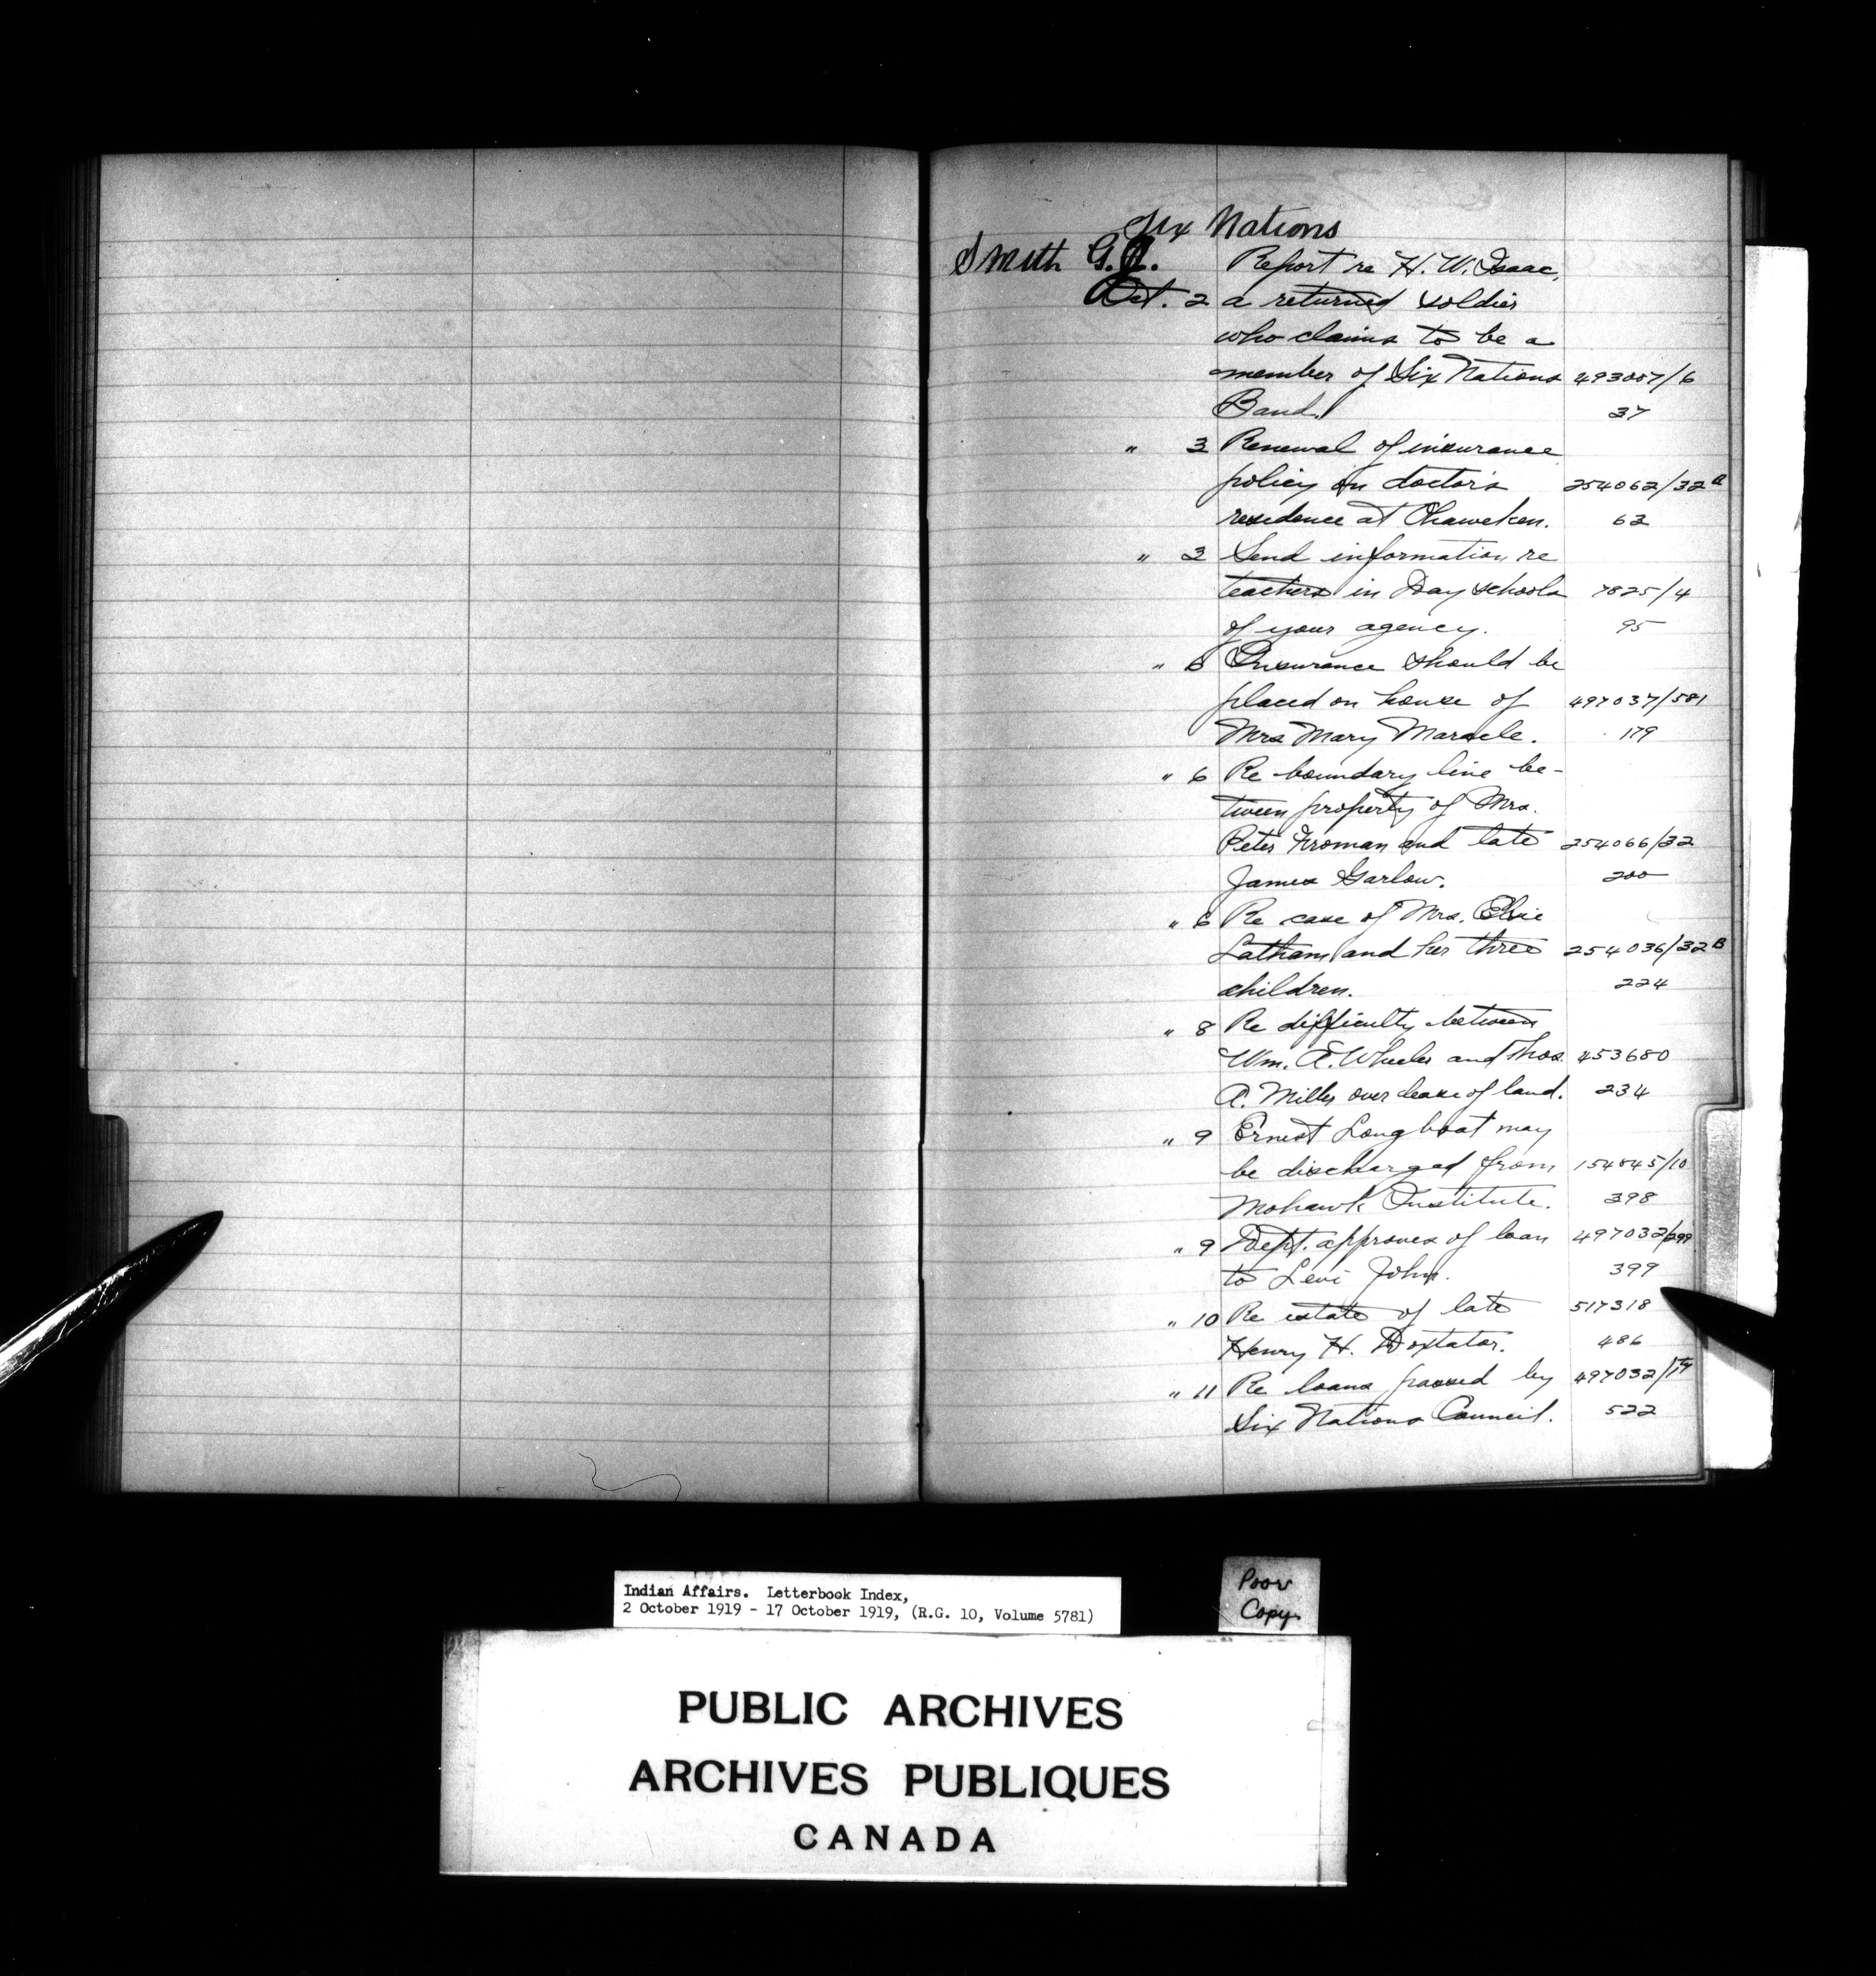 Six Nations
Smith G.J. Report re H. W. Isaac,
Oct. 2 a returned soldier
who claims to be a
member of Six Nations 493007/6
Band. 37
" 3 Renewal of insurance
policy on doctor's 254062/32 A
residence at Ohsweken. 63
" 3 Send information re
teachers in Day schools 7825/4
of your agency. 95
" 6 Insurance should be
placed on house of 497037/581
Mrs Mary Maracle. 179
" 6 Re boundary line be-
tween property of Mrs.
Peter Froman and late 254066/32
James Garlow. 200
" 6 Re case of Mrs. Elsie
Latham and her three 254036/32 B
children. 224
" 8 Re difficulty between
Wm. A. Wheeler and Thos. 453680
A. Miller over lease of land. 234
" 9 Ernest Longboat may
be discharged from 154845/10
Mohawk Institute. 398
" 9 Dept. approves of loan 497032/299
to Levi John. 399
" 10 Re estate of late 517318
Henry H. Doxtator. 486
" 11 Re loans passed by 497032/17
Six Nations Council. 522
Indian Affairs. Letterbook Index,
2 October 1919 - 17 October 1919, (R.G. 10, Volume 5781)
Poor
Copy.
PUBLIC ARCHIVES
ARCHIVES PUBLIQUES
CANADA